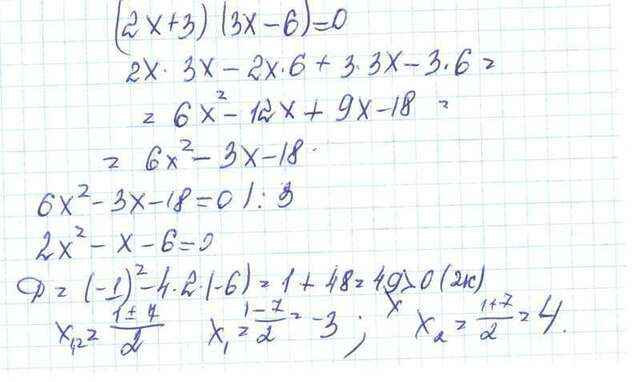 (2x+3) (3x-6)=0
2x · 3x - 2x·6 + 3·3x - 3·6 =
= 6x² - 12x + 9x - 18 =
= 6x² - 3x - 18.
6x² - 3x - 18 = 0 /: 3
2x² - x - 6 = 0
D = (-1)² - 4·2·(-6) = 1 + 48 = 49 > 0 (2к)
x₁,₂ = (1±7)/2 x₁ = (1-7)/2 = -3 ; x x₂ = (1+7)/2 = 4.